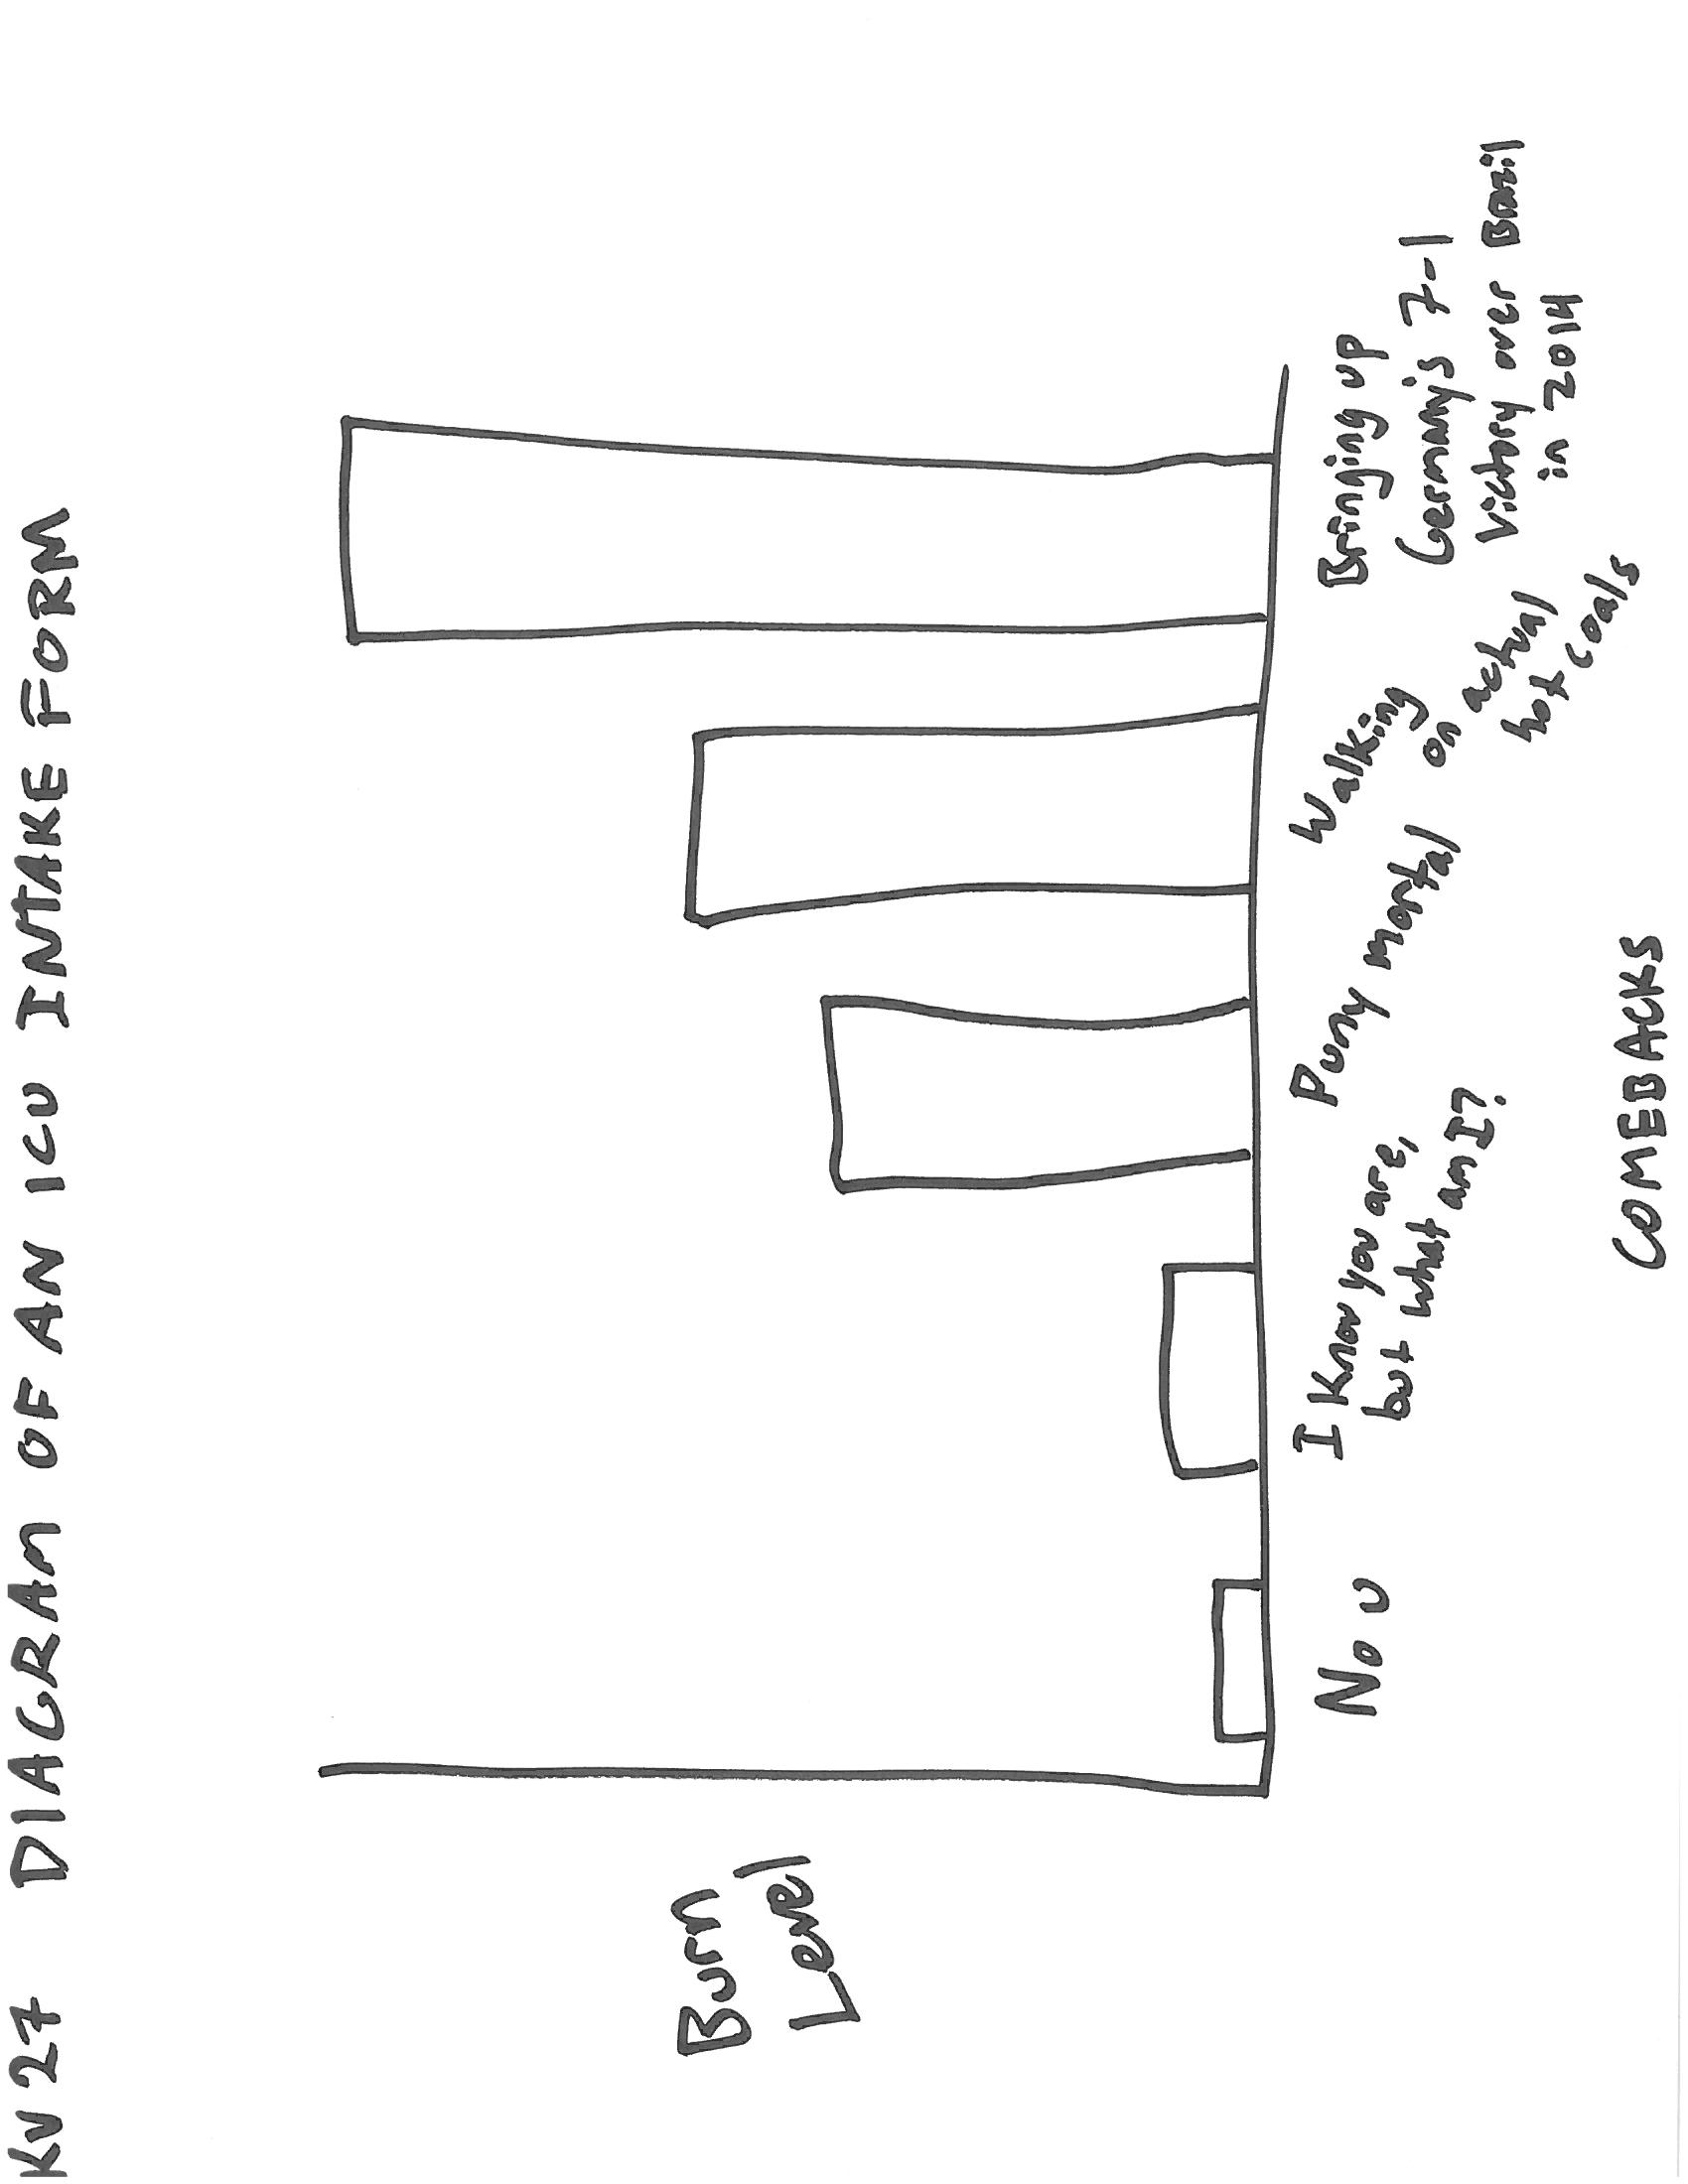 KV27 DIAGRAM OF AN ICU INTAKE FORM
Burn
Level
No U
I know you are,
but what am I?
Puny mortal
Walking
on actual
hot coals
Bringing up
Germany's 7-1
Victory over Brazil
in 2014
COMEBACKS